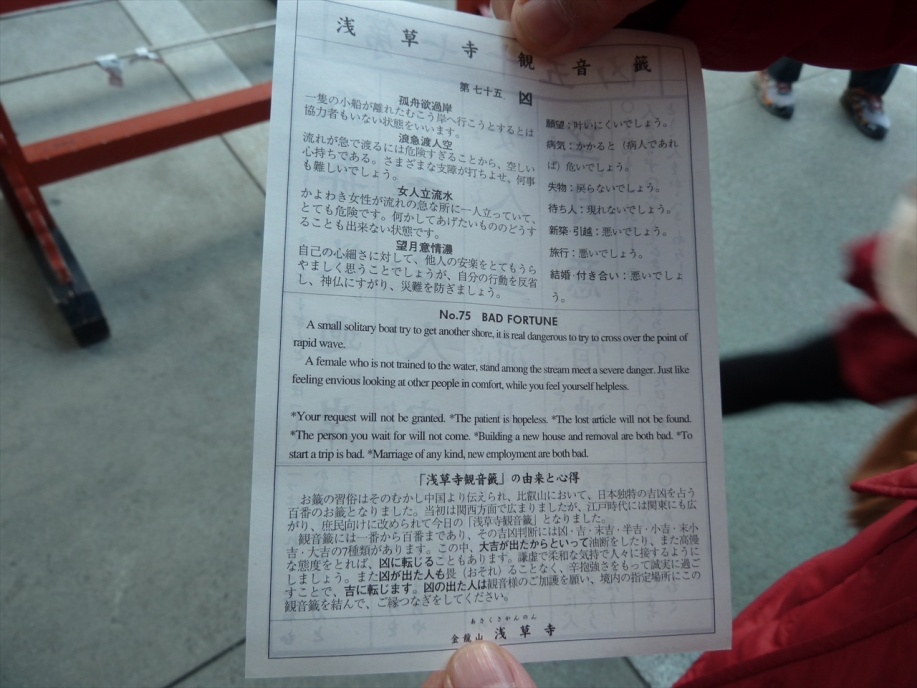 浅草寺観音籤
第七十五 凶
孤舟欲過岸
一隻の小船が離れたむこう岸へ行こうとするとは
協力者もいない状態をいいます。
浪急渡人空
流れが急で渡るには危険すぎることから、空しい
心持ちである。さまざまな支障が打ちよせ、何事
も難しいでしょう。
女人立流水
かよわき女性が流れの急な所に一人立っていて、
とても危険です。何かしてあげたいもののどうす
ることも出来ない状態です。
望月意情濃
自己の心細さに対して、他人の安楽をとてもうら
やましく思うことでしょうが、自分の行動を反省
し、神仏にすがり、災難を防ぎましょう。
願望：叶いにくいでしょう。
病気：かかると（病人であれ
ば）危いでしょう。
失物：戻らないでしょう。
待ち人：現れないでしょう。
新築・引越：悪いでしょう。
旅行：悪いでしょう。
結婚・付き合い：悪いでしょ
う。
No.75 BAD FORTUNE
A small solitary boat try to get another shore, it is real dangerous to try to cross over the point of
rapid wave.
A female who is not trained to the water, stand among the stream meet a severe danger. Just like
feeling envious looking at other people in comfort, while you feel yourself helpless.
*Your request will not be granted. *The patient is hopeless. *The lost article will not be found.
*The person you wait for will not come. *Building a new house and removal are both bad. *To
start a trip is bad. *Marriage of any kind, new employment are both bad.
「浅草寺観音籤」の由来と心得
お籤の習俗はそのむかし中国より伝えられ、比叡山において、日本独特の吉凶を占う
百番のお籤となりました。当初は関西方面で広まりましたが、江戸時代には関東にも広
がり、庶民向けに改められて今日の「浅草寺観音籤」となりました。
観音籤には一番から百番まであり、その吉凶判断には凶・吉・末吉・半吉・小吉・末小
吉・大吉の7種類があります。この中、大吉が出たからといって油断をしたり、また高慢
な態度をとれば、凶に転じることもあります。謙虚で柔和な気持で人々に接するように
しましょう。また凶が出た人も畏（おそれ）ることなく、辛抱強さをもって誠実に過ご
すことで、吉に転じます。凶の出た人は観音様のご加護を願い、境内の指定場所にこの
観音籤を結んで、ご縁つなぎをしてください。
あさくさかんのん
金龍山 浅草寺